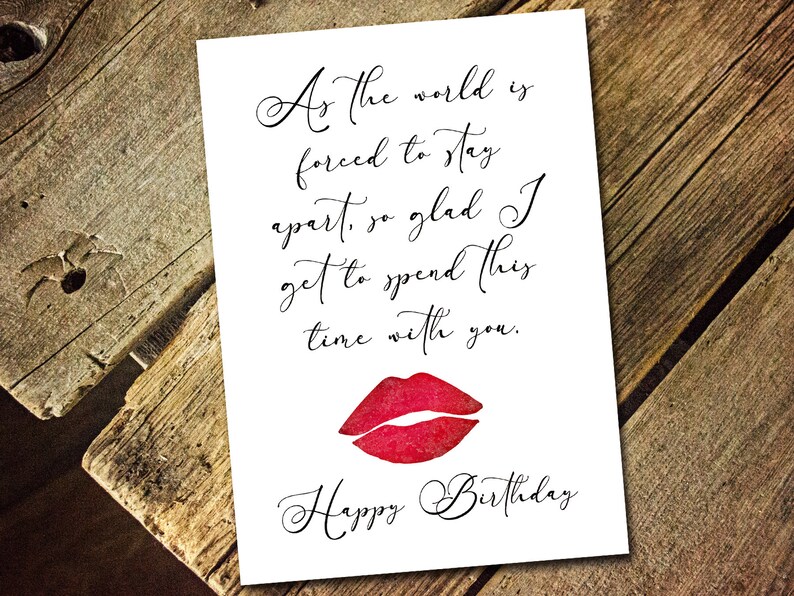 As the world is
forced to stay
apart, so glad I
get to spend this
time with you.
Happy Birthday